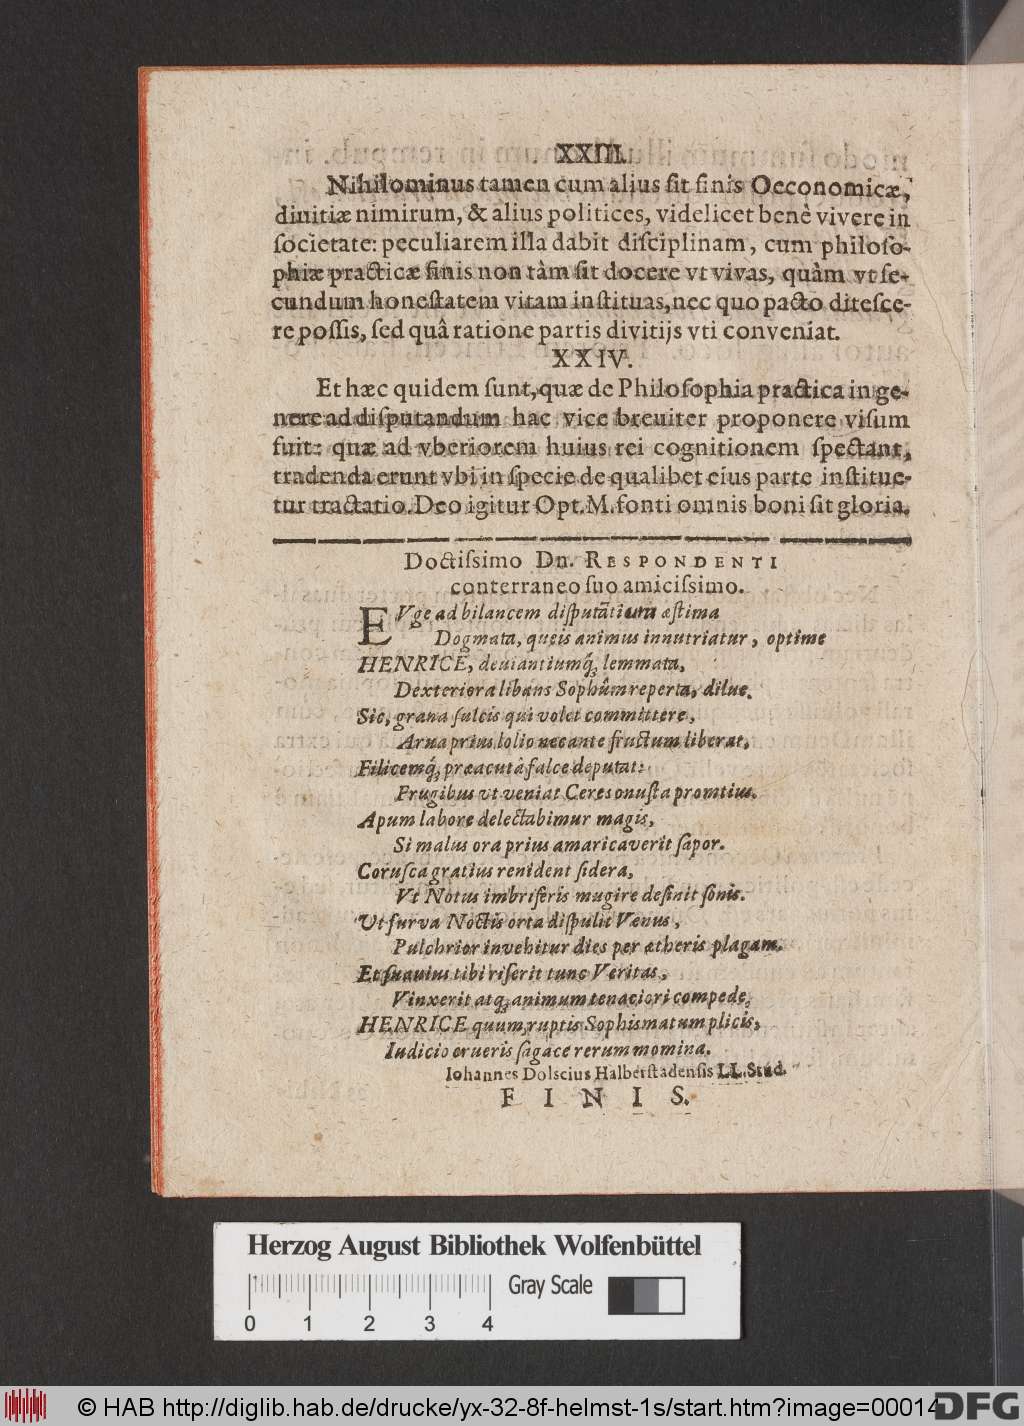 XXIII.
Nihilominus tamen cum alius sit finis Oeconomicæ,
divitiæ nimirum, & alius politices, videlicet benè vivere in
societate: peculiarem illa dabit disciplinam, cum philoso-
phiæ practicæ finis non tàm sit docere vt vivas, quàm vt se-
cundum honestatem vitam instituas, nec quo pacto ditesce-
re possis, sed quâ ratione partis divitijs vti conveniat.
XXIV.
Et hæc quidem sunt, quæ de Philosophia practica in ge-
nere ad disputandum hac vice breuiter proponere visum
fuit: quæ ad vberiorem huius rei cognitionem spectant,
tradenda erunt vbi in specie de qualibet eius parte institue-
tur tractatio. Deo igitur Opt. M. fonti omnis boni sit gloria.
Doctissimo Dn. RESPONDENTI
conterraneo suo amicissimo.
EVge ad bilancem disputātium æstima
Dogmata, queis animus innutriatur, optime
HENRICE, deuiantiumq́; lemmata,
Dexteriora libans Sophûm reperta, dilue.
Sic, grana sulcis qui volet committere,
Arua prius lolio necante fructum liberat,
Filicemq́; præacutâ falce deputat:
Frugibus vt veniat Ceres onusta promtius.
Apum labore delectabimur magis,
Si malus ora prius amaricaverit sapor.
Corusca gratius renident sidera,
Vt Notus imbriferis mugire desinit sonis.
Ut furva Noctis orta dispulit Vænus,
Pulchrior invehitur dies per ætheris plagam.
Et suauius tibi riserit tunc Veritas,
Vinxerit atq; animum tenaciori compede,
HENRICE quum, ruptis Sophismatum plicis,
Iudicio erueris sagace rerum momina.
Iohannes Dolscius Halberstadensis LL. Stud.
FINIS.
Herzog August Bibliothek Wolfenbüttel
Gray Scale
0 1 2 3 4
© HAB http://diglib.hab.de/drucke/yx-32-8f-helmst-1s/start.htm?image=00014
DFG